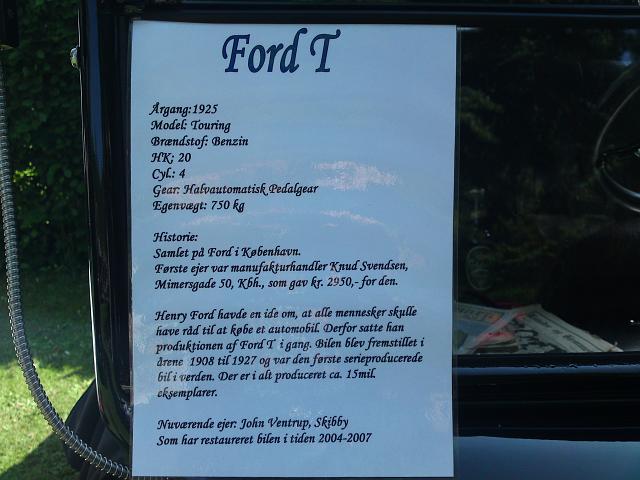 Ford T
Årgang:1925
Model: Touring
Brændstof: Benzin
HK: 20
Cyl.: 4
Gear: Halvautomatisk Pedalgear
Egenvægt: 750 kg
Historie:
Samlet på Ford i København.
Første ejer var manufakturhandler Knud Svendsen,
Mimersgade 50, Kbh., som gav kr. 2950,- for den.
Henry Ford havde en ide om, at alle mennesker skulle
have råd til at købe et automobil. Derfor satte han
produktionen af Ford T i gang. Bilen blev fremstillet i
årene 1908 til 1927 og var den første serieproducerede
bil i verden. Der er i alt produceret ca. 15mil.
eksemplarer.
Nuværende ejer: John Ventrup, Skibby
Som har restaureret bilen i tiden 2004-2007